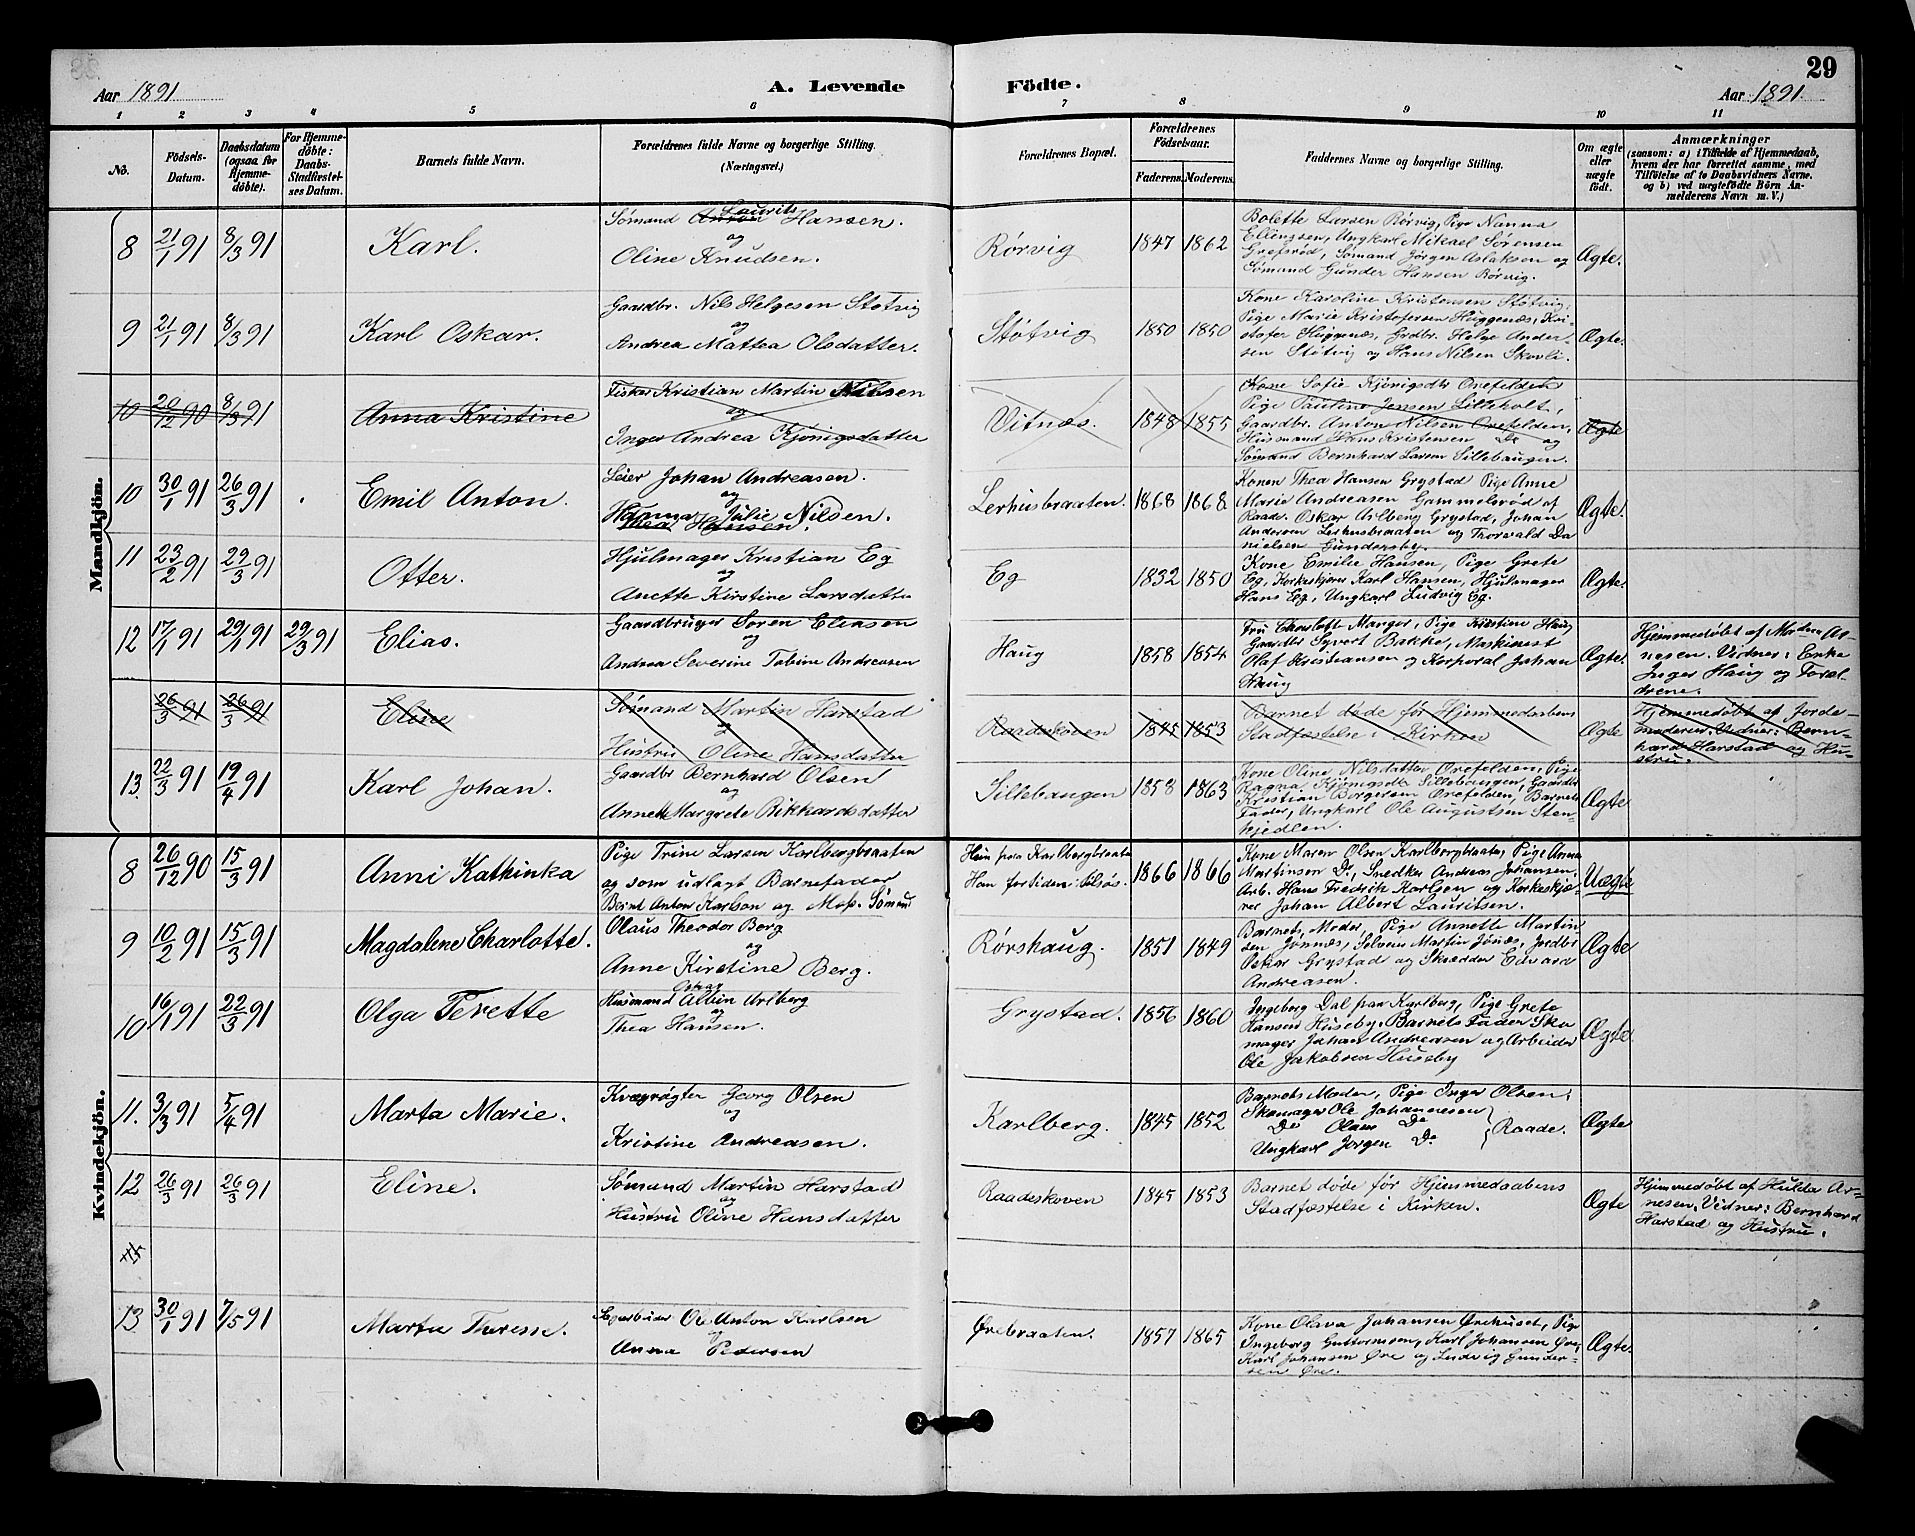 29
Aar 1891
A. Levende Födte.
Aar 1891.
1 2 3 4 5 6 7 8 9 10 11
No.
Födsels-Datum.
Daabsdatum (ogsaa for Hjemmedöbte).
For Hjemmedöbte: Daabs-Stadfæstelses Datum.
Barnets fulde Navn.
Forældrenes fulde Navne og borgerlige Stilling.
(Næringsvei.)
Forældrenes Bopæl.
Forældrenes Födselsaar.
Faderens. Moderens.
Faddernes Navne og borgerlige Stilling.
Om ægte eller uægte födt.
Anmærkninger
(saasom: a) i Tilfælde af Hjemmedaab,
hvem der har forrettet samme, med
Tilföielse af to Daabsvidners Navne.
og b) ved uægtefödte Börn An-
melderens Navn m. V.)
Mandkjön.
8 21/1 91 8/3 91 Karl.
Sømand Anton Laurits Hansen.
og
Oline Knudsen.
Rörvig 1847 1862
Bolette Larsen Rörvig, Pige Nanna
Ellingsen, Ungkarl Mikael Sørensen
Grefsröd, Sømand Jörgen Aslaksen og
Sømand Gunder Hansen Rörvig.
Ægte.
9 21/1 91 8/3 91 Karl Oskar.
Gaardbr. Nils Helgesen Støtvig
og
Andrea Mattea Olsdatter.
Støtvig 1850 1850
Kone Karoline Kristensen Støtvig,
Pige Marie Kristofersen Huggenæs, Kri-
stofer Huggenæs, Grdbr. Helge Ander-
sen Støtvig og Hans Nilsen Skovli.
Ægte.
10 20/12 90 8/3 91 Anna Kristine
Fisker Kristian Martin Nilsen
og
Inger Andrea Kjönigsdatter
Vitnæs. 1848 1855
Kone Sofie Kjönigsdtr Orefelden
Pige Pauline Jensen Lilleholt,
Gaardbr. Anton Nilsen Orefelden,
Husmand Hans Kristensen Do og
Sømand Bernhard Larsen Sillebaugen.
Ægte
10 30/1 91 26/3 91 Emil Anton.
Leier Johan Andreasen.
og
Hanna Julie Nilsen.
Thea Hansen
Lerhusbraaten. 1868 1868
Konen Thea Hansen Grystad Pige Anne
Marie Andreasen Gammelsrød af
Raade. Oskar Arlberg Grystad, Johan
Andersen Lerhusbraaten og Thorvald Da
nielsen Gundersby.
Ægte.
11 23/2 91 22/3 91 Otter.
Hjulmager Kristian Eg
og
Anette Kirstine Larsdatter
Eg 1832 1850
Kone Emilie Hansen, Pige Grete
Eg, Korkeskjærer Karl Hansen, Hjulmager
Hans Eg, Ungkarl Ludvig Eg.
Ægte.
12 17/1 91 29/1 91 29/3 91 Elias.
Gaardbruger Søren Eliasen
og
Andrea Severine Tobine Andreasen
Haug 1858 1854
Fru Charlotte Manger, Pige Kristine Haug
Gaardbr Syvert Bakke, Maskinest
Olaf Kristiansen og Korporal Johan
Haug
Ægte.
Hjemmedøbt af Madam Ar-
nesen. Vidner: Enke
Inger Haug og Foræl-
drene.
26/3 91 26/3 91 Eline
Sømand Martin Harstad
og
Hustru Oline Hansdatter
Raadeskoven 1845 1853
Barnet døde før Hjemmedaabens
Stadfæstelse i Kirken
Ægte
Hjemmedøbt af Jorde-
moderen. Vidner: Bern-
hard Harstad og Hu-
stru.
13. 22/3 91 19/4 91 Karl Johan.
Gaardbr Bernhard Olsen
og
Annett Margrete Rikkardsdatter
Sillebaugen 1858 1863
Kone Oline Nilsdatter Orefelden, Pige
Ragna Kjönigsen Sillebaugen, Gaardbr
Kristian Borgersen Orefelden, Barnets
Fader, Ungkarl Ole Augustsen Sten-
kjedlen.
Ægte
Kvindekjön.
8 26/12 90 15/3 91 Anni Kathinka
Pige Trine Larsen Karlbergbraaten
og som udlagt Barnefader
Bernt Anton Karlson og Moss. Sømand
Hun paa Karlbergbraaten
Han fortiden: tilsøs.
1866 1866
Kone Maren Olsen Karlbergbraaten, Pige Anna
Martinsen Do, Snedker Andreas Johansen.
Arb. Hans Fredrik Karlsen og Korkeskjæ-
rer Johan Albert Lauritsen.
Uægte
9 10/2 91 15/3 91 Magdalene Charlotte.
Olaus Theodor Berg
og
Anne Kirstine Berg.
Rörshaug. 1851 1849
Barnets Moder, Pige Annette Martin
sen Jonnæs, Selveier Martin Jönæs, Jordbr
Oskar Grystad og Skrædder Edvard
Andreasen.
Ægte
10 16/1 91 22/3 91 Olga Terette
Husmand Oskar Albin Arlberg
og
Thea Hansen.
Grystad. 1856 1860
Ingeborg Dal paa Karlberg, Pige Grete
Hansen Huseby. Barnets Fader Sko
mager Johan Andreasen og Arbeider
Ole Jakobsen Huseby
Ægte.
11. 3/3 91 5/4 91 Marta Marie.
Kvægrögter Georg Olsen
og
Kristine Andreasen.
Karlberg. 1845 1852
Barnets Moder, Pige Inger Olsen,
Skomager Ole Johannesen
Do Olaus Do
Ungkarl Jorgen Do
Raade.
Ægte
12 26/3 91 26/3 91 Eline.
Sømand Martin Harstad
og
Hustru Oline Hansdatter
Raadeskoven 1845 1853
Barnet døde før Hjemmedaabens
Stadfæstelse i Kirken.
Ægte
Hjemmedøbt af Hulda Ar-
nesen. Vidner: Bernhard
Harstad og Hustru.
13 30/1 91 7/5 91 Marta Therese.
Ole Anton Karlsen
og
Anna Pedersen
Ørebraaten. 1857 1865
Kone Olava Johansen Ørehuset, Pige
Ingeborg Guttormsen, Karl Johansen Øre,
Karl Johansen Øre og Ludvig Gunder-
sen Øre.
Ægte.